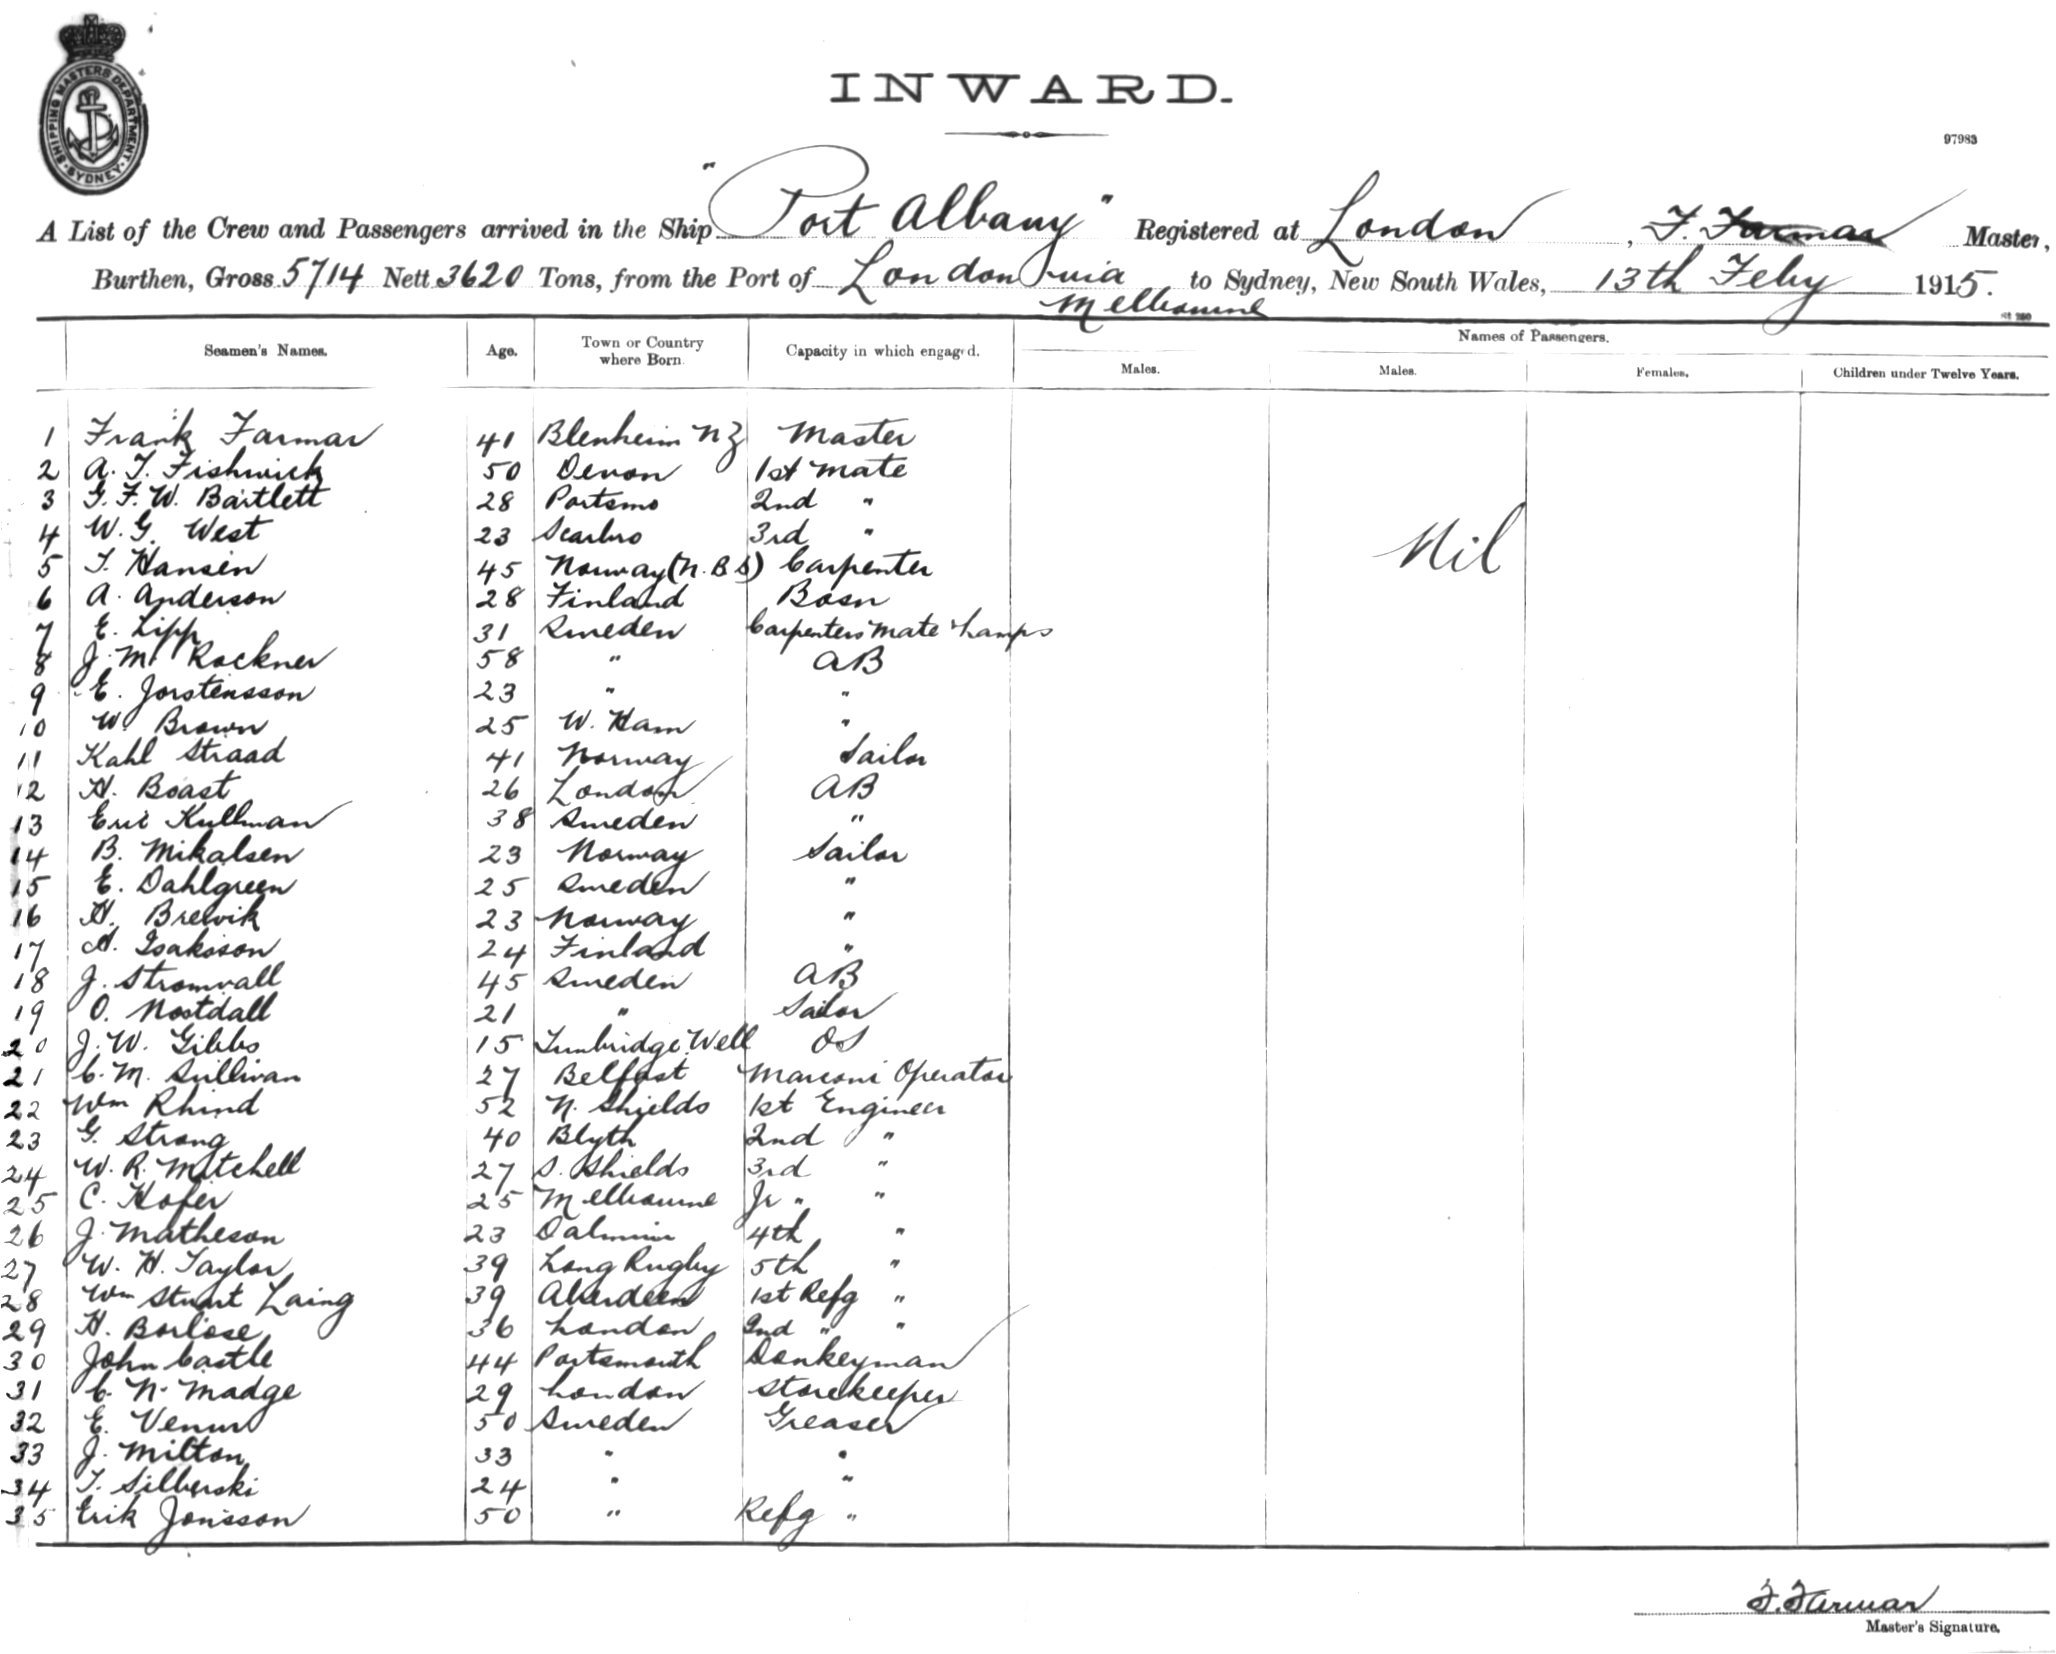 SHIPPING MASTERS DEPARTMENT
SYDNEY
INWARD.
97983
A List of the Crew and Passengers arrived in the Ship "Port Albany" Registered at London, F. Farmar Master,
Burthen, Gross 5714 Nett 3620 Tons, from the Port of London via Melbourne to Sydney, New South Wales, 13th Feby 1915.
Names of Passengers.
Seamen's Names. Age. Town or Country where Born. Capacity in which engaged. Males. Males. Females. Children under Twelve Years.
1 Frank Farmar 41 Blenheim NZ Master
2 A. T. Fishwick 50 Devon 1st Mate
3 G. F. W. Bartlett 28 Portsmo 2nd "
4 W. G. West 23 Scarbro 3rd "
Nil
5 T. Hansen 45 Norway (N.B.S) Carpenter
6 A. Anderson 28 Finland Bosn
7 E. Lipp 31 Sweden Carpenters Mate & Lamps
8 J. M. Rockner 58 " AB
9 E. Jorstensson 23 " "
10 W. Brown 25 W. Ham "
11 Kahl Straad 41 Norway Sailor
12 H. Boast 26 London AB
13 Eric Kullman 38 Sweden "
14 B. Mikalsen 23 Norway Sailor
15 E. Dahlgreen 25 Sweden "
16 H. Brewik 23 Norway "
17 A. Isaksson 24 Finland "
18 J. Stromvall 45 Sweden AB
19 O. Nostdall 21 " Sailor
20 J. W. Gibbs 15 Tunbridge Well OS
21 C. M. Sullivan 27 Belfast Marconi Operator
22 Wm Rhind 52 N. Shields 1st Engineer
23 G. Strong 40 Blyth 2nd "
24 W. R. Mitchell 27 S. Shields 3rd "
25 C. Hofer 25 Melbourne Jr " "
26 J. Matheson 23 4th "
27 W. H. Taylor 39 Long Rugby 5th "
28 Wm Stuart Laing 39 Aberdeen 1st Refg "
29 H. Borlase 36 London 2nd " "
30 John Castle 44 Portsmouth Donkeyman
31 C. N. Madge 29 London Storekeeper
32 E. 50 Sweden Greaser
33 J. Milton 33 " "
34 T. Silberski 24 " "
35 Erik Jonsson 50 " Refg "
F. Farmar
Master's Signature.